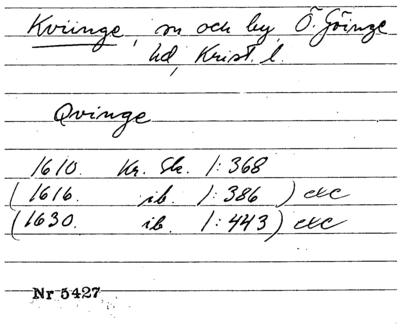 Kviinge, sn och by, Ö. Göinge
hd, Krist. l.
Qvinge
1610. Kr. Sk. 1:368
(1616. ib. 1:386) etc
(1630. ib. 1:443) etc
Nr 5427